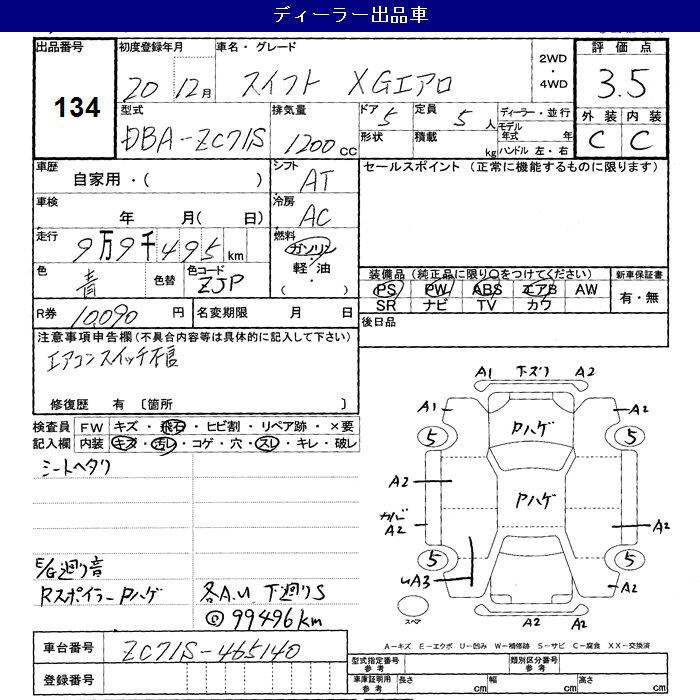 ディーラー出品車
出品番号 134
初度登録年月 20 12月
車名・グレード スイフト XGエアロ
2WD・4WD
評価点 3.5
型式 DBA-ZC71S
排気量 1200cc
ドア 5 形状
定員 5人 積載 kg
ディーラー・並行
モデル年式 年
ハンドル 左・右
外装 内装
C C
車歴 自家用・( )
シフト AT
セールスポイント(正常に機能するものに限ります)
車検 年 月( 日)
冷房 AC
走行 9万9千495km
燃料 ガソリン・軽油・( )
色 青 色替 色コード ZJP
装備品(純正品に限り○をつけてください)
新車保証書
PS PW ABS エアB AW
有・無
SR ナビ TV カワ
R券 10,090円
名変期限 月 日
後日品
注意事項申告欄(不具合内容等は具体的に記入して下さい)
エアコンスイッチ不良
修復歴 有〔箇所 〕
検査員記入欄
FW キズ・飛石・ヒビ割・リペア跡・×要
内装 キズ・汚レ・コゲ・穴・スレ・キレ・破レ
シートヘタリ
E/G廻り音
Rスポイラー Pハゲ 各A.U 下廻りS
@99496km
A1 下ズリ A2
A1 A2
Pハゲ
5 5
A2
Pハゲ
A2 A2
5 5
UA3 A2
スペア
A2 A2
A-キズ E-エクボ U-凹み W-補修跡 S-サビ C-腐食 XX-交換済
車台番号 ZC71S-465140
登録番号
型式指定番号参考
類別区分番号参考
車庫証明用参考 長さ cm 幅 cm 高さ cm